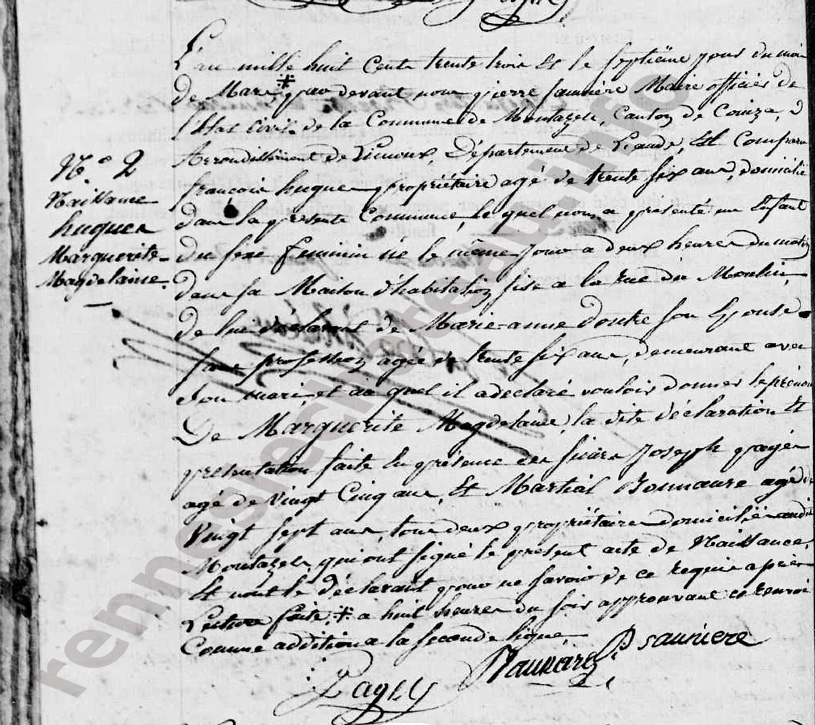 N.º 2
Naissance
hugues
Marguerite
Magdelaine
L'an mille huit cents trente trois et le septième jour du moi
de Mars * par devant nous pierre saunière Maire officier de
l'Etat Civil de la Commune de Montazels, Canton de Couiza,
Arrondissement de Limoux, Département de L'aude, Est Comparu
françois hugues propriétaire agé de trente six ans, domicilié
dans la présente Commune, le quel nous a présenté un Enfant
du sexe feminin né le même jour a deux heures du matin
dans sa Maison d'habitation sise a la rue du Moulin,
de lui déclarant de Marie-anne doutre son Epouse
sans profession agée de trente six ans, demeurant avec
son mari et au quel il a déclaré vouloir donner le prénom
De Marguerite Magdelaine, la dite déclaration et
présentation faite En présence des sieurs Joseph pagès
agé de Vingt Cinq ans, Et Martial agé de
Vingt sept ans, tous deux propriétaires domiciliés audit
Montazels, qui ont signé le présent acte de Naissance
Et nont le déclarant pour ne savoir de ce requis après
Lecture faite, * a huit heures du soir approuvant ce renvoi
Comme addition a la seconde ligne.
Pagès P saunière
rennes-le-chateau.info